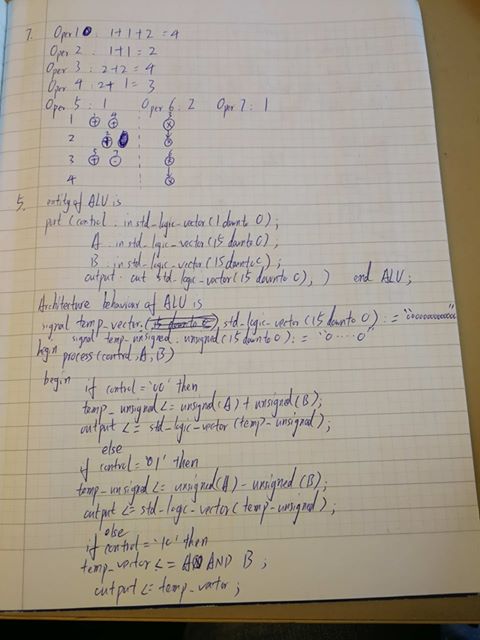 7. Oper 1 : 1+1+2 = 4
Oper 2 : 1+1 = 2
Oper 3 : 2+2 = 4
Oper 4 : 2+ 1 = 3
Oper 5 : 1 Oper 6 : 2 Oper 7 : 1
1 + +
2 +
3 + -
4
5. entity of ALU is
port (control : in std-logic-vector (1 downto 0);
A : in std-logic-vector (15 downto 0);
B : in std-logic-vector (15 downto 0);
output : out std-logic-vector (15 downto 0); ) end ALU;
Architecture behaviour of ALU is
signal temp-vector: std-logic-vector (15 downto 0) :=
signal temp-unsigned : unsigned (15 downto 0) := "0.....0"
begin process (control, A, B)
begin if control = '00' then
temp-unsigned <= unsigned (A) + unsigned (B);
output <= std-logic-vector (temp-unsigned);
else
if control = '01' then
temp-unsigned <= unsigned (A) - unsigned (B);
output <= std-logic-vector (temp-unsigned);
else
if control = '10' then
temp-vector <= A AND B ;
output <= temp-vector ;